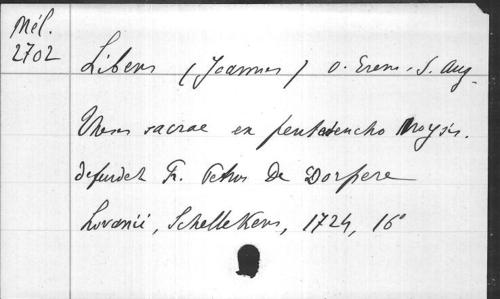 Mél.
2702
Libens (Joannes) O. Erem. S. Aug.
Theses sacrae ex pentateucho Moysis.
defendet Fr. Petrus De Dorpere
Lovanii, Schellekens, 1724, 16°